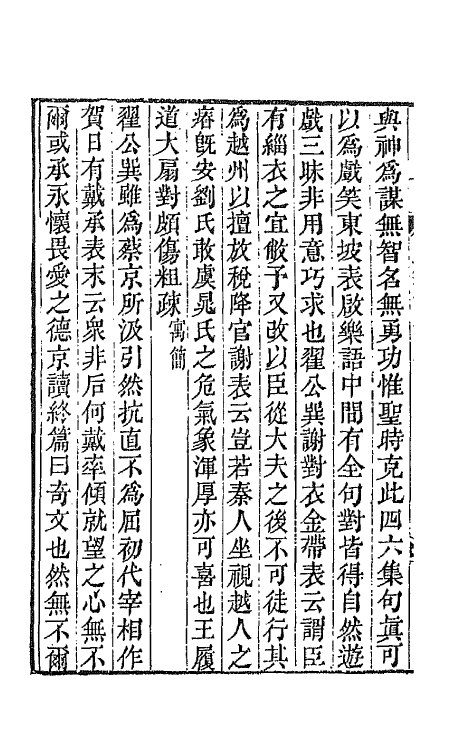 與神爲謀無智名無勇功惟聖時克此四六集句眞可
以爲戲笑東坡表啟樂語中間有全句對皆得自然遊
戲三昧非用意巧求也翟公巽謝對衣金帶表云謂臣
有緇衣之宜敝予又改以臣從大夫之後不可徒行其
爲越州以擅放稅降官謝表云豈若秦人坐視越人之
瘠旣安劉氏敢虞晁氏之危氣象渾厚亦可喜也王履
道大扇對頗傷粗疎寓簡
翟公巽雖爲蔡京所汲引然抗直不爲屈初代宰相作
賀日有戴承表末云衆非后何戴率傾就望之心無不
爾或承永懷畏愛之德京讀終篇曰奇文也然無不爾